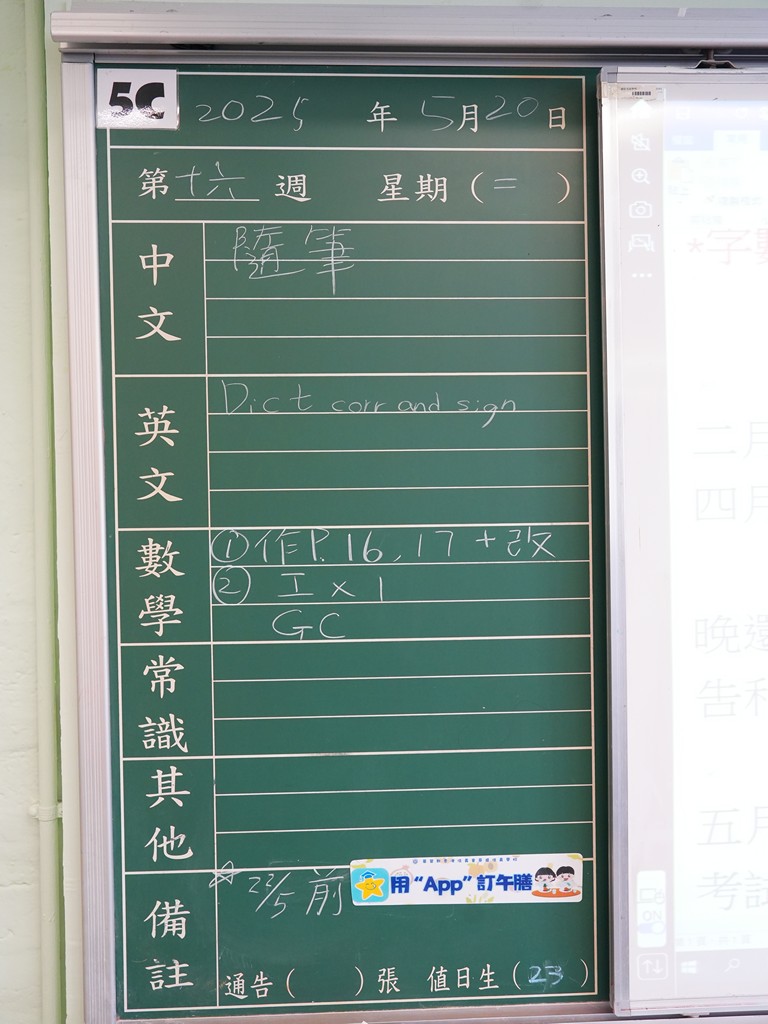 5C
2025 年 5月20日
第十六週 星期(二)
中文
隨筆
英文
Dict corr and sign
數學
①作P. 16, 17 + 改
② 工 x 1
GC
常識
其他
備註
☆ 22/5 前
用 “App” 訂午膳
通告( )張 值日生(23)
*字數
二月
四月
晚還
告和
五月
考試
ON